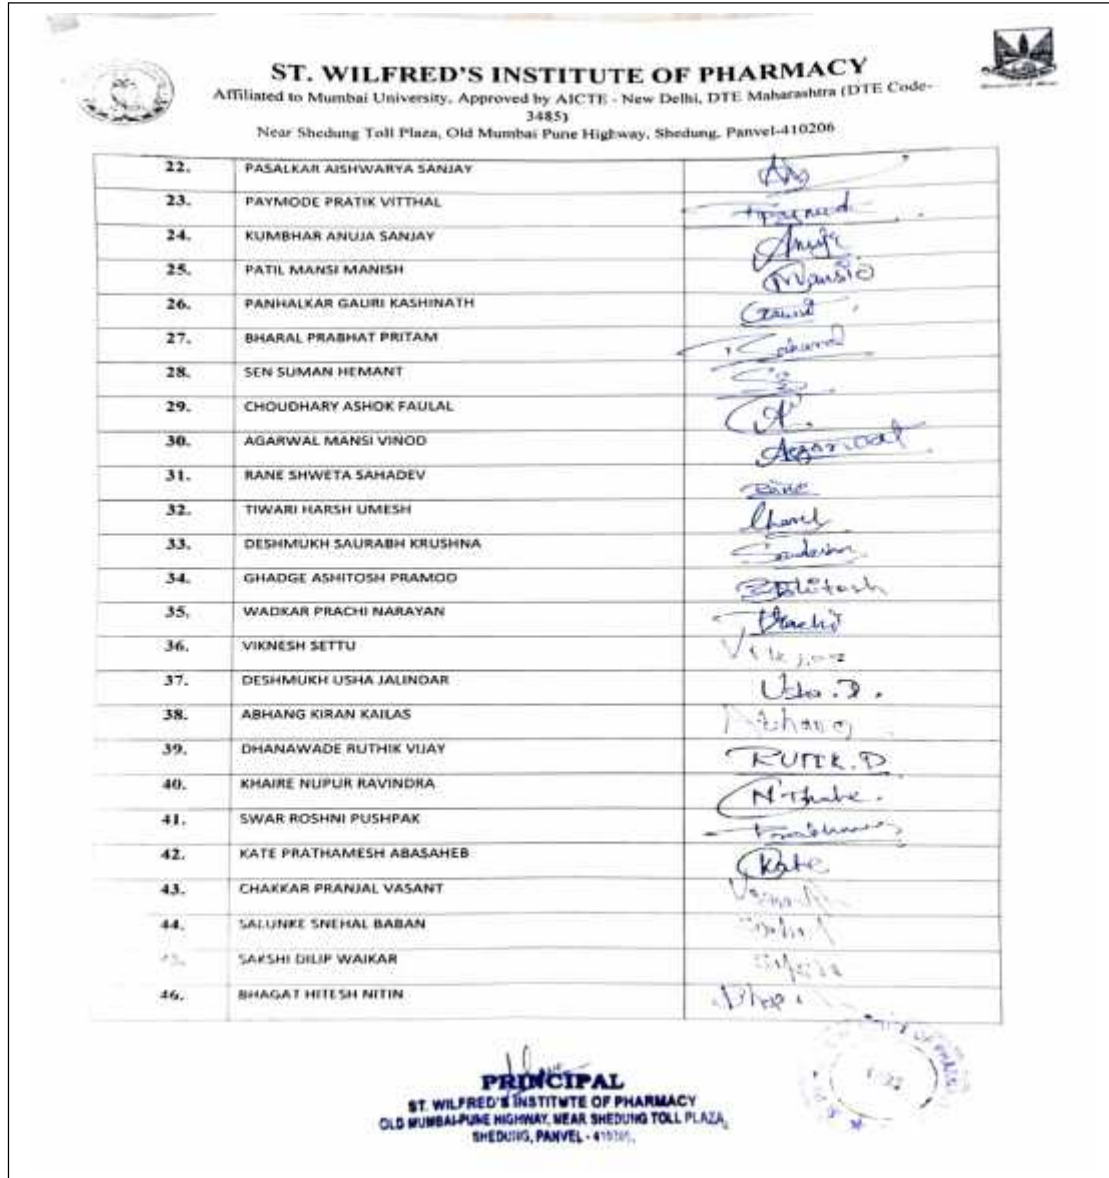 ST. WILFRED'S INSTITUTE OF PHARMACY
Affiliated to Mumbai University, Approved by AICTE - New Delhi, DTE Maharashtra (DTE Code-
3485)
Near Shedung Toll Plaza, Old Mumbai Pune Highway, Shedung, Panvel-410206
22. PASALKAR AISHWARYA SANJAY
23. PAYMODE PRATIK VITTHAL
24. KUMBHAR ANUJA SANJAY Anuja
25. PATIL MANSI MANISH Mansi
26. PANHALKAR GAURI KASHINATH
27. BHARAL PRABHAT PRITAM
28. SEN SUMAN HEMANT
29. CHOUDHARY ASHOK FAULAL
30. AGARWAL MANSI VINOD Agarwal
31. RANE SHWETA SAHADEV Rane
32. TIWARI HARSH UMESH
33. DESHMUKH SAURABH KRUSHNA
34. GHADGE ASHITOSH PRAMOD Ashitosh
35. WADKAR PRACHI NARAYAN Prachi
36. VIKNESH SETTU
37. DESHMUKH USHA JALINDAR Usha.D.
38. ABHANG KIRAN KAILAS Abhang
39. DHANAWADE RUTHIK VIJAY RUTIK.D
40. KHAIRE NUPUR RAVINDRA
41. SWAR ROSHNI PUSHPAK
42. KATE PRATHAMESH ABASAHEB Kate
43. CHAKKAR PRANJAL VASANT
44. SALUNKE SNEHAL BABAN
45. SAKSHI DILIP WAIKAR
46. BHAGAT HITESH NITIN
PRINCIPAL
ST. WILFRED'S INSTITUTE OF PHARMACY
OLD MUMBAI-PUNE HIGHWAY, NEAR SHEDUNG TOLL PLAZA,
SHEDUNG, PANVEL -